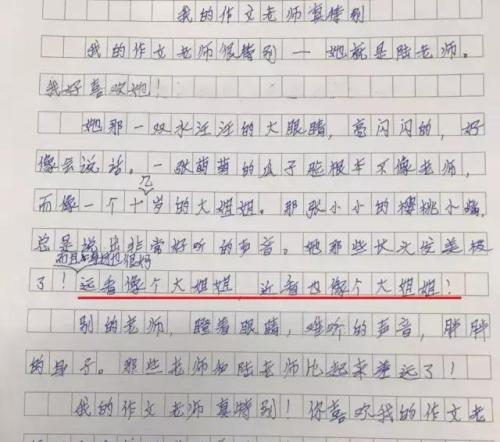 我的作文老师真特别
我的作文老师很特别——她就是陆老师。
我好喜欢她!
她那一双水汪汪的大眼睛,亮闪闪的,好
像会说话。一张萌萌的瓜子脸根本不像老师,
而像一个十几岁的大姐姐。那张小小的樱桃小嘴,
总是说出非常好听的声音。她那些长头发美极
了!而且身材也很好 远看像个大姐姐 近看也像个大姐姐!
别的老师,瞪着眼睛,难听的声音,胖胖
的身子。那些老师和陆老师比起来差远了!
我的作文老师真特别!你喜欢我的作文老